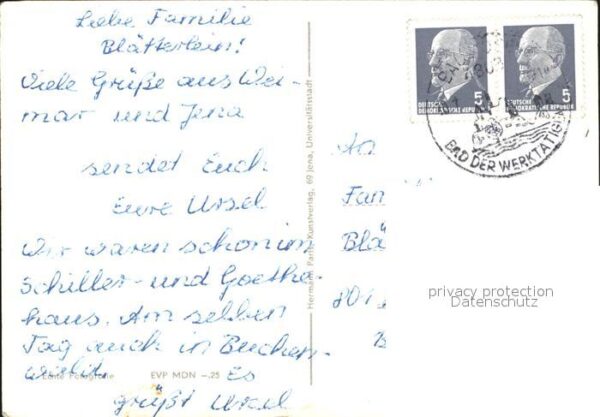 Liebe Familie
Blätterlein!
Viele Grüße aus Wei-
mar und Jena
sendet Euch
Eure Ursel
Wir waren schon im
Schiller- und Goethe-
haus. Am selben
Tag auch in Buchen-
wald. Es
grüßt Ursel
Echte Fotografie EVP MDN –.25
Hermann Paris, Kunstverlag, 69 Jena, Universitätsstadt
DEUTSCHE
DEMOKRATISCHE REPUBLIK
5
DEUTSCHE
DEMOKRATISCHE REPUBLIK
5
BAD DER WERKTÄTIGEN
An
Fam
Blä
801
privacy protection
Datenschutz